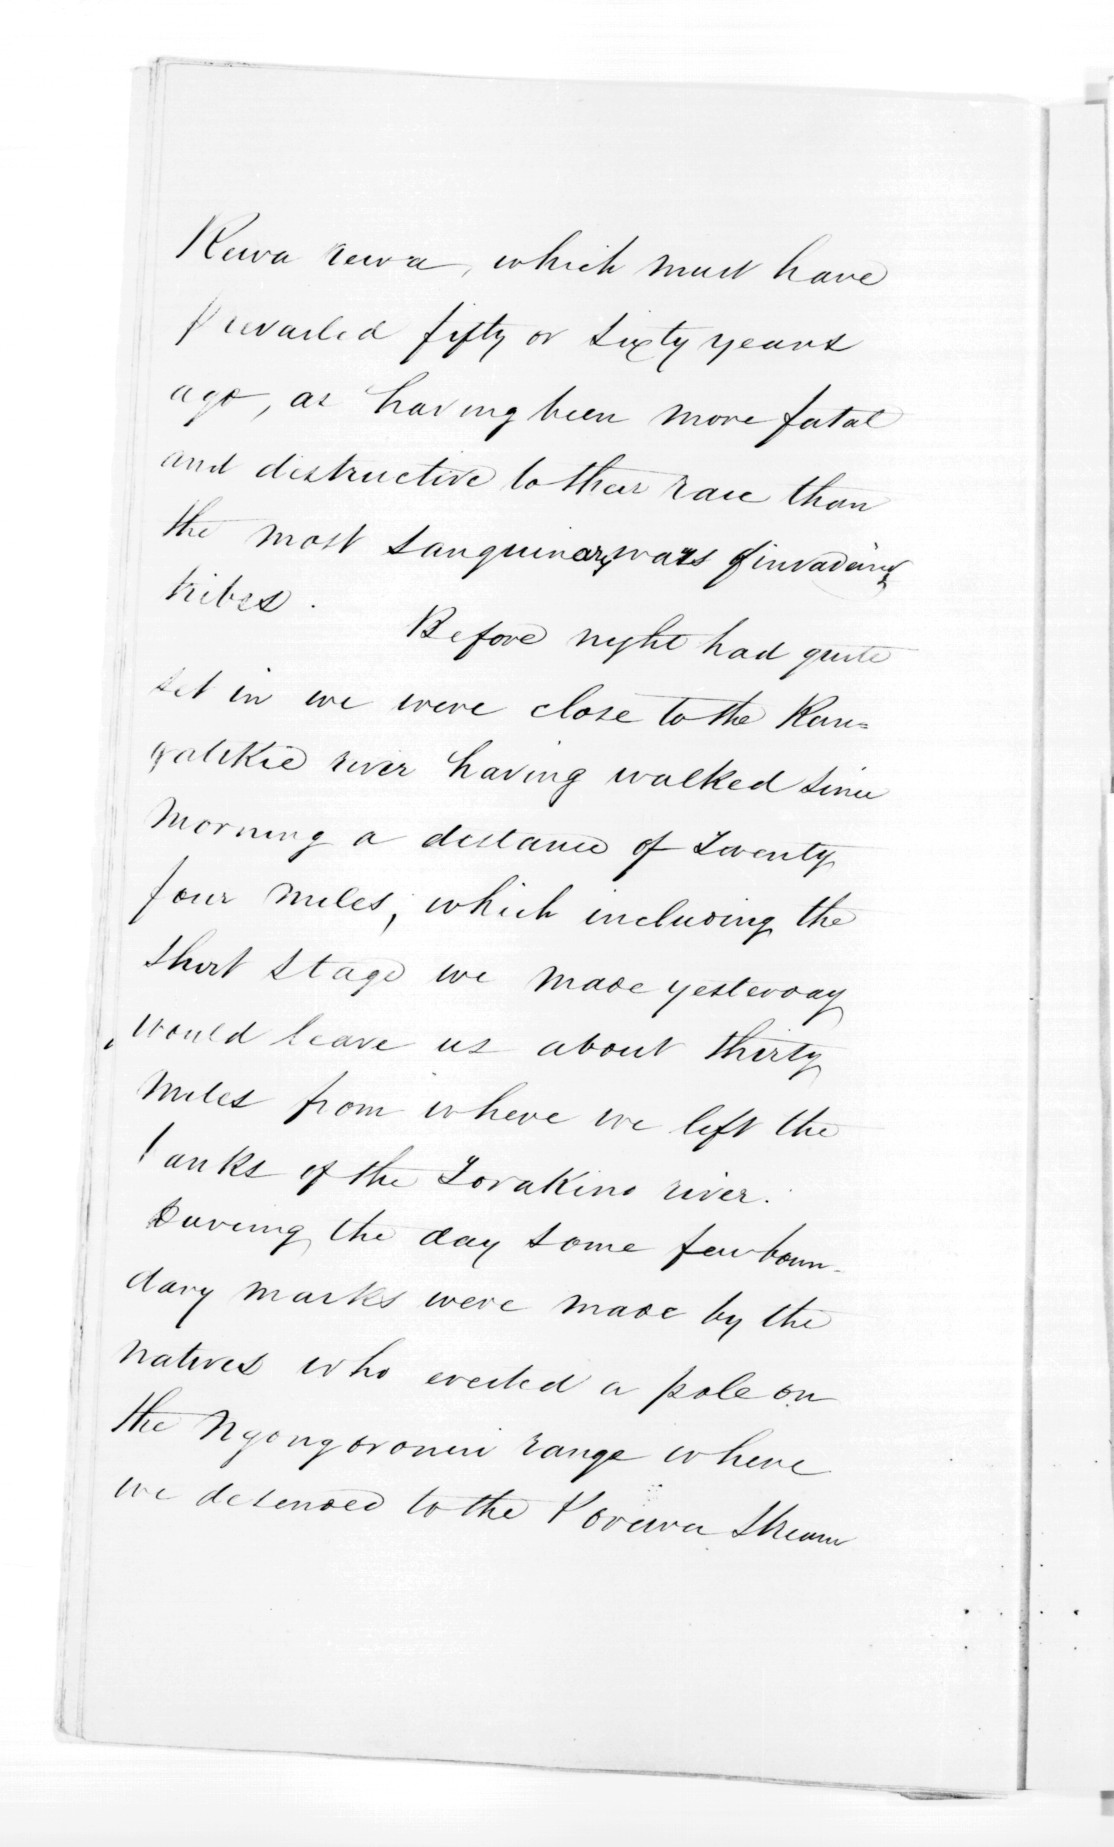 Rewa rewa, which must have
prevailed fifty or sixty years
ago, as having been more fatal
and distructive to their race than
the most sanguinary wars of invading
tribes.
Before night had quite
set in we were close to the Ran=
gatikie river having walked since
morning a distance of Twenty
four miles, which including the
short stage we made yesterday
would leave us about thirty
miles from where we left the
banks of the Turakino river.
During the day some few boun-
dary marks were made by the
natives who erected a pole on
the Ngongoronui range where
we descended to the Porewa Stream